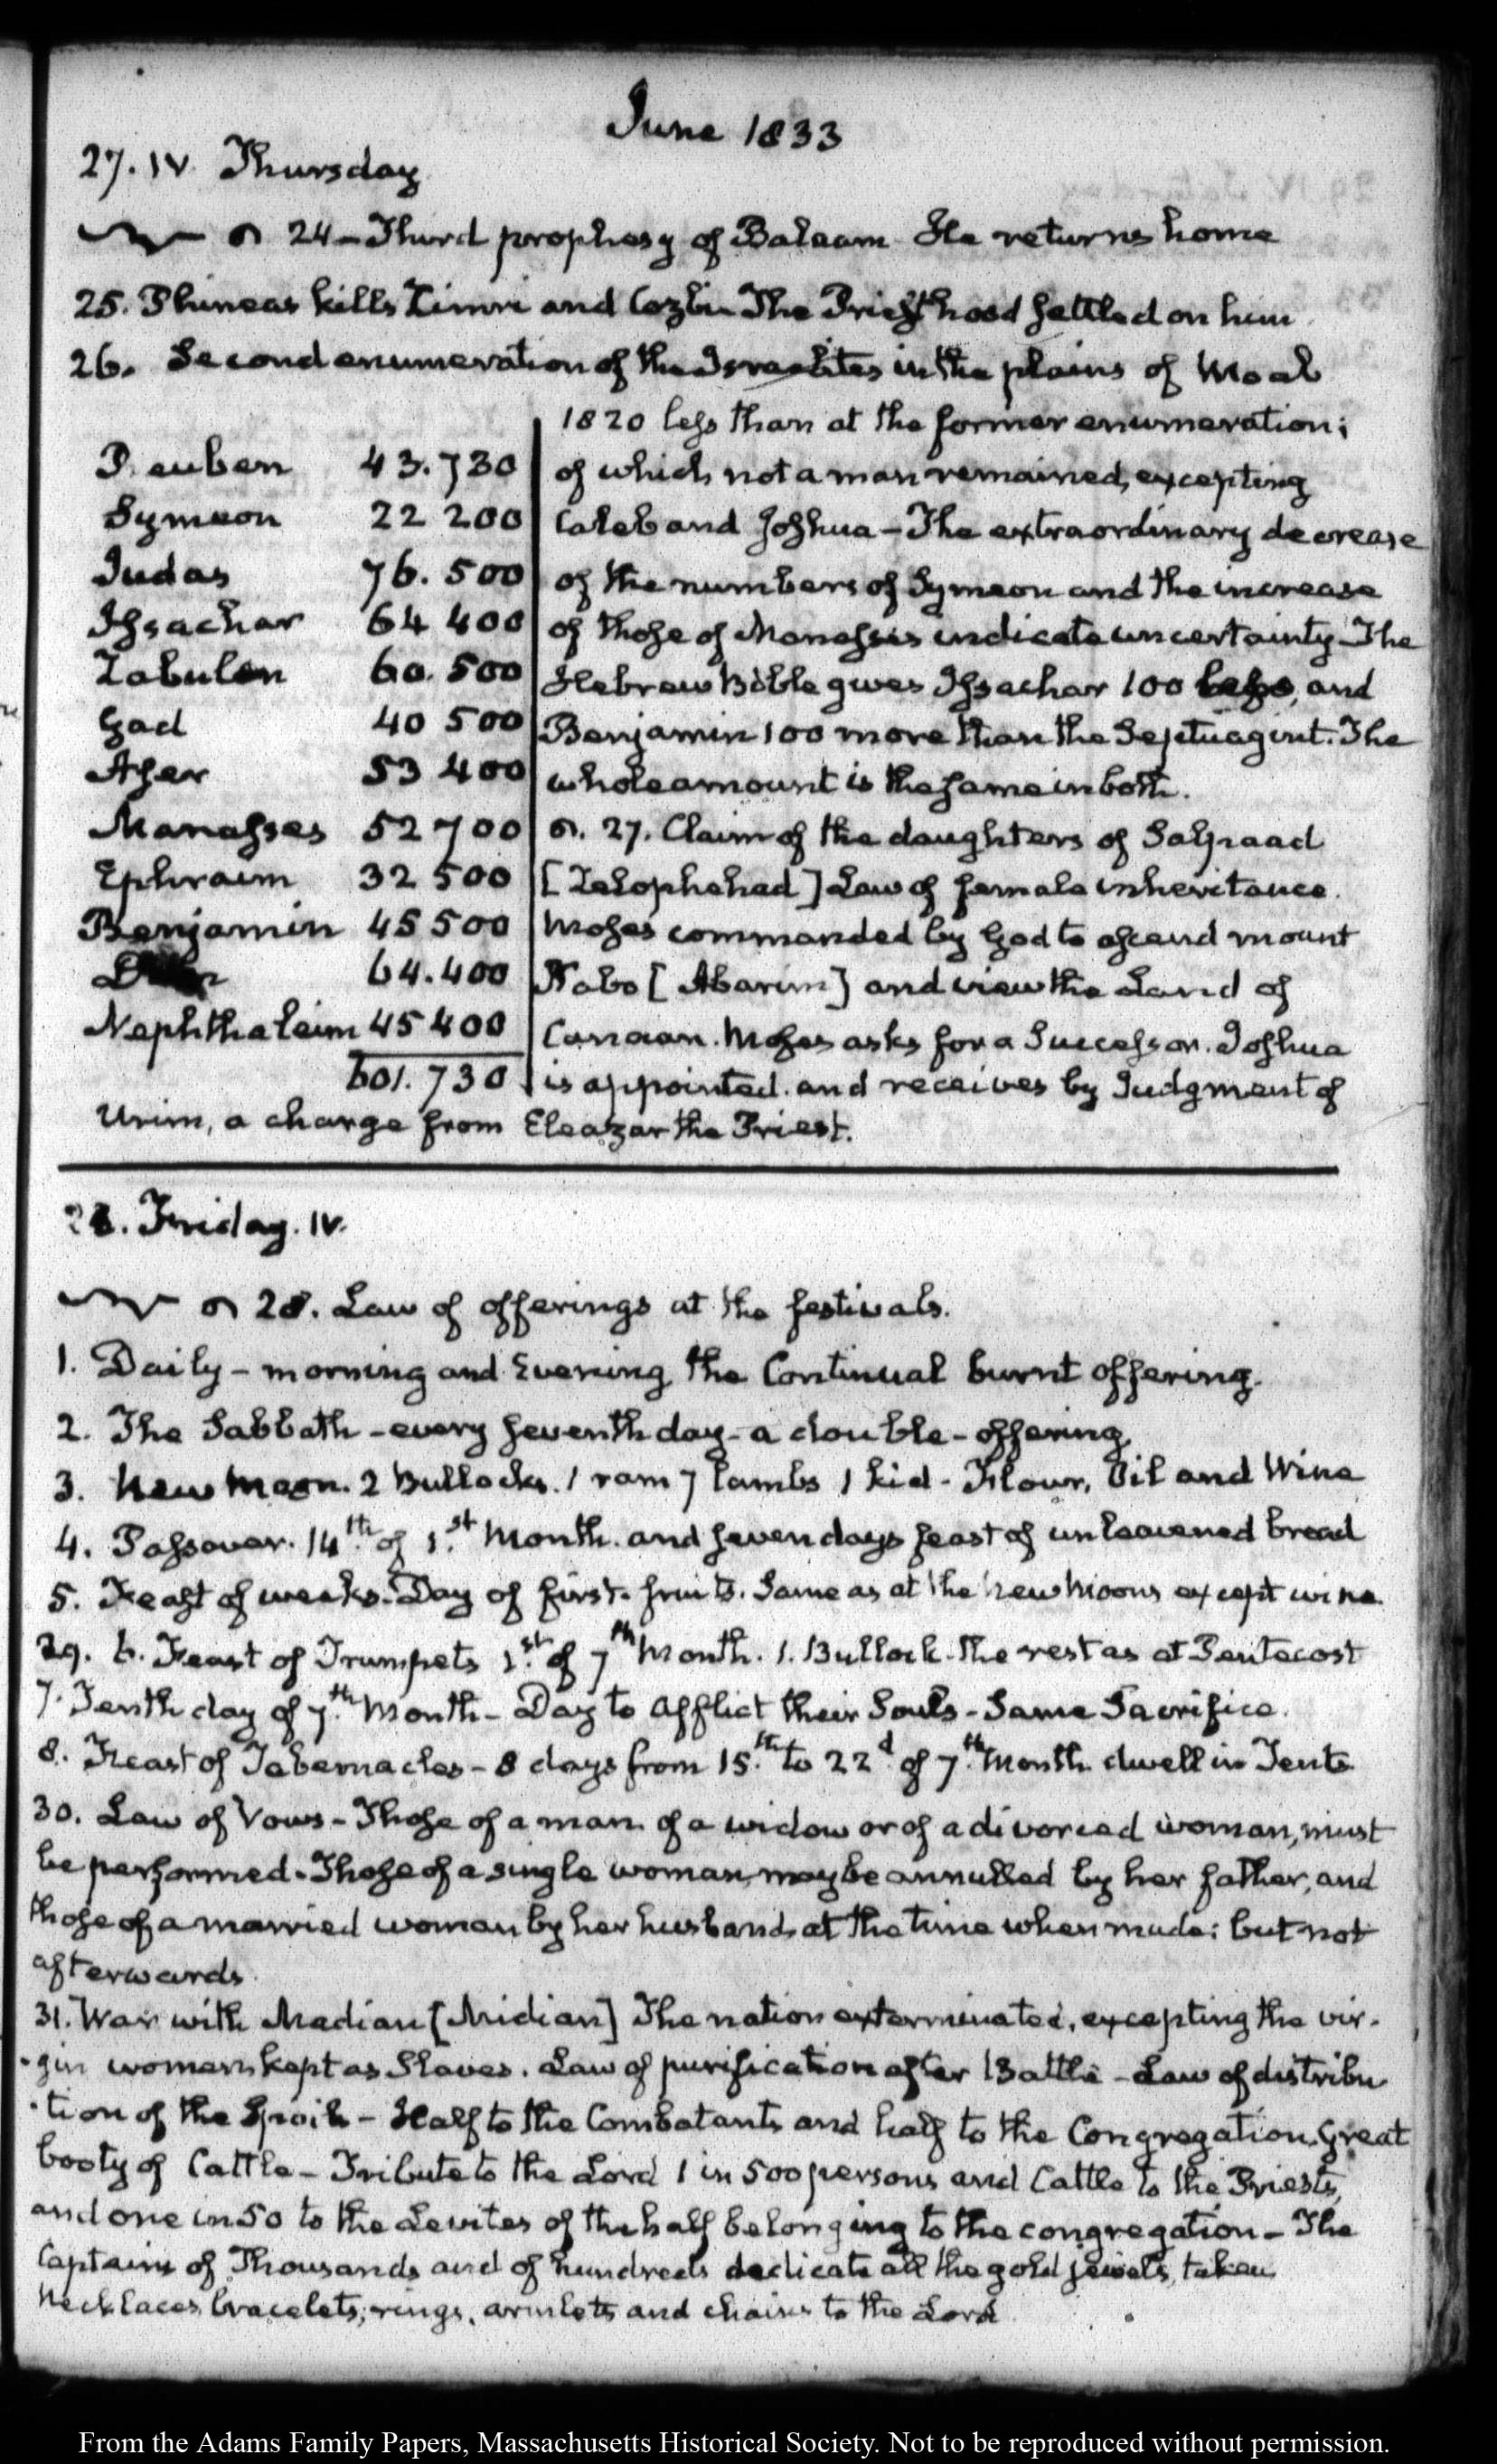 June 1833
27. IV. Thursday
24 - Third prophesy of Balaam He returns home
25. Phineas kills Zimri and Cozbi The Priesthood settled on him
26. Second enumeration of the Israelites in the plains of Moab
Reuben 43.730
Symeon 22 200
Judas 76.500
Issachar 64 400
Zabulon 60.500
Gad 40 500
Aser 53 400
Manasses 52 700
Ephraim 32 500
Benjamin 45 500
Dan 64.400
Nephthaleim 45 400
601.730
1820 less than at the former enumeration;
of which not a man remained, excepting
Caleb and Joshua - The extraordinary decrease
of the numbers of Symeon and the increase
of those of Manasses indicate uncertainty - The
Hebrew Bible gives Issachar 100 less, and
Benjamin 100 more than the Septuagint. The
whole amount is the same in both.
27. Claim of the daughters of Salpaad
[Zelophehad] Law of female inheritance.
Moses commanded by God to ascend mount
Nabo [Abarim] and view the Land of
Canaan. Moses asks for a Successor. Joshua
is appointed. and receives by Judgment of
Urim, a charge from Eleazar the Priest.
28. Friday. IV.
28. Law of offerings at the festivals.
1. Daily - morning and Evening the Continual burnt offering.
2. The Sabbath - every seventh day - a double - offering
3. New Moon. 2 Bullocks. 1 ram 7 lambs 1 kid - Flour, Oil and Wine
4. Passover. 14th of 1st Month. and seven days feast of unleavened bread
5. Feast of weeks. Day of first-fruits. Same as at the New Moons except wine.
29. 6. Feast of Trumpets 1st of 7th Month. 1. Bullock. the rest as at Pentecost
7. Tenth day of 7th Month - Day to afflict their Souls - Same Sacrifice.
8. Feast of Tabernacles - 8 days from 15th to 22d of 7th Month dwell in Tents
30. Law of Vows - Those of a man. of a widow or of a divorced woman, must
be performed - Those of a single woman, may be annulled by her father, and
those of a married woman by her husband, at the time when made: but not
afterwards.
31. War with Madian [Midian] The nation exterminated, excepting the vir-
-gin women, kept as Slaves. Law of purification after Battle - Law of distribu
-tion of the Spoils - Half to the Combatants and half to the Congregation. Great
booty of Cattle - Tribute to the Lord 1 in 500 persons and Cattle to the Priests,
and one in 50 to the Levites of the half belonging to the congregation - The
Captains of Thousands and of hundreds dedicate all the gold jewels, taken
Necklaces bracelets, rings, armlets and chains to the Lord
From the Adams Family Papers, Massachusetts Historical Society. Not to be reproduced without permission.